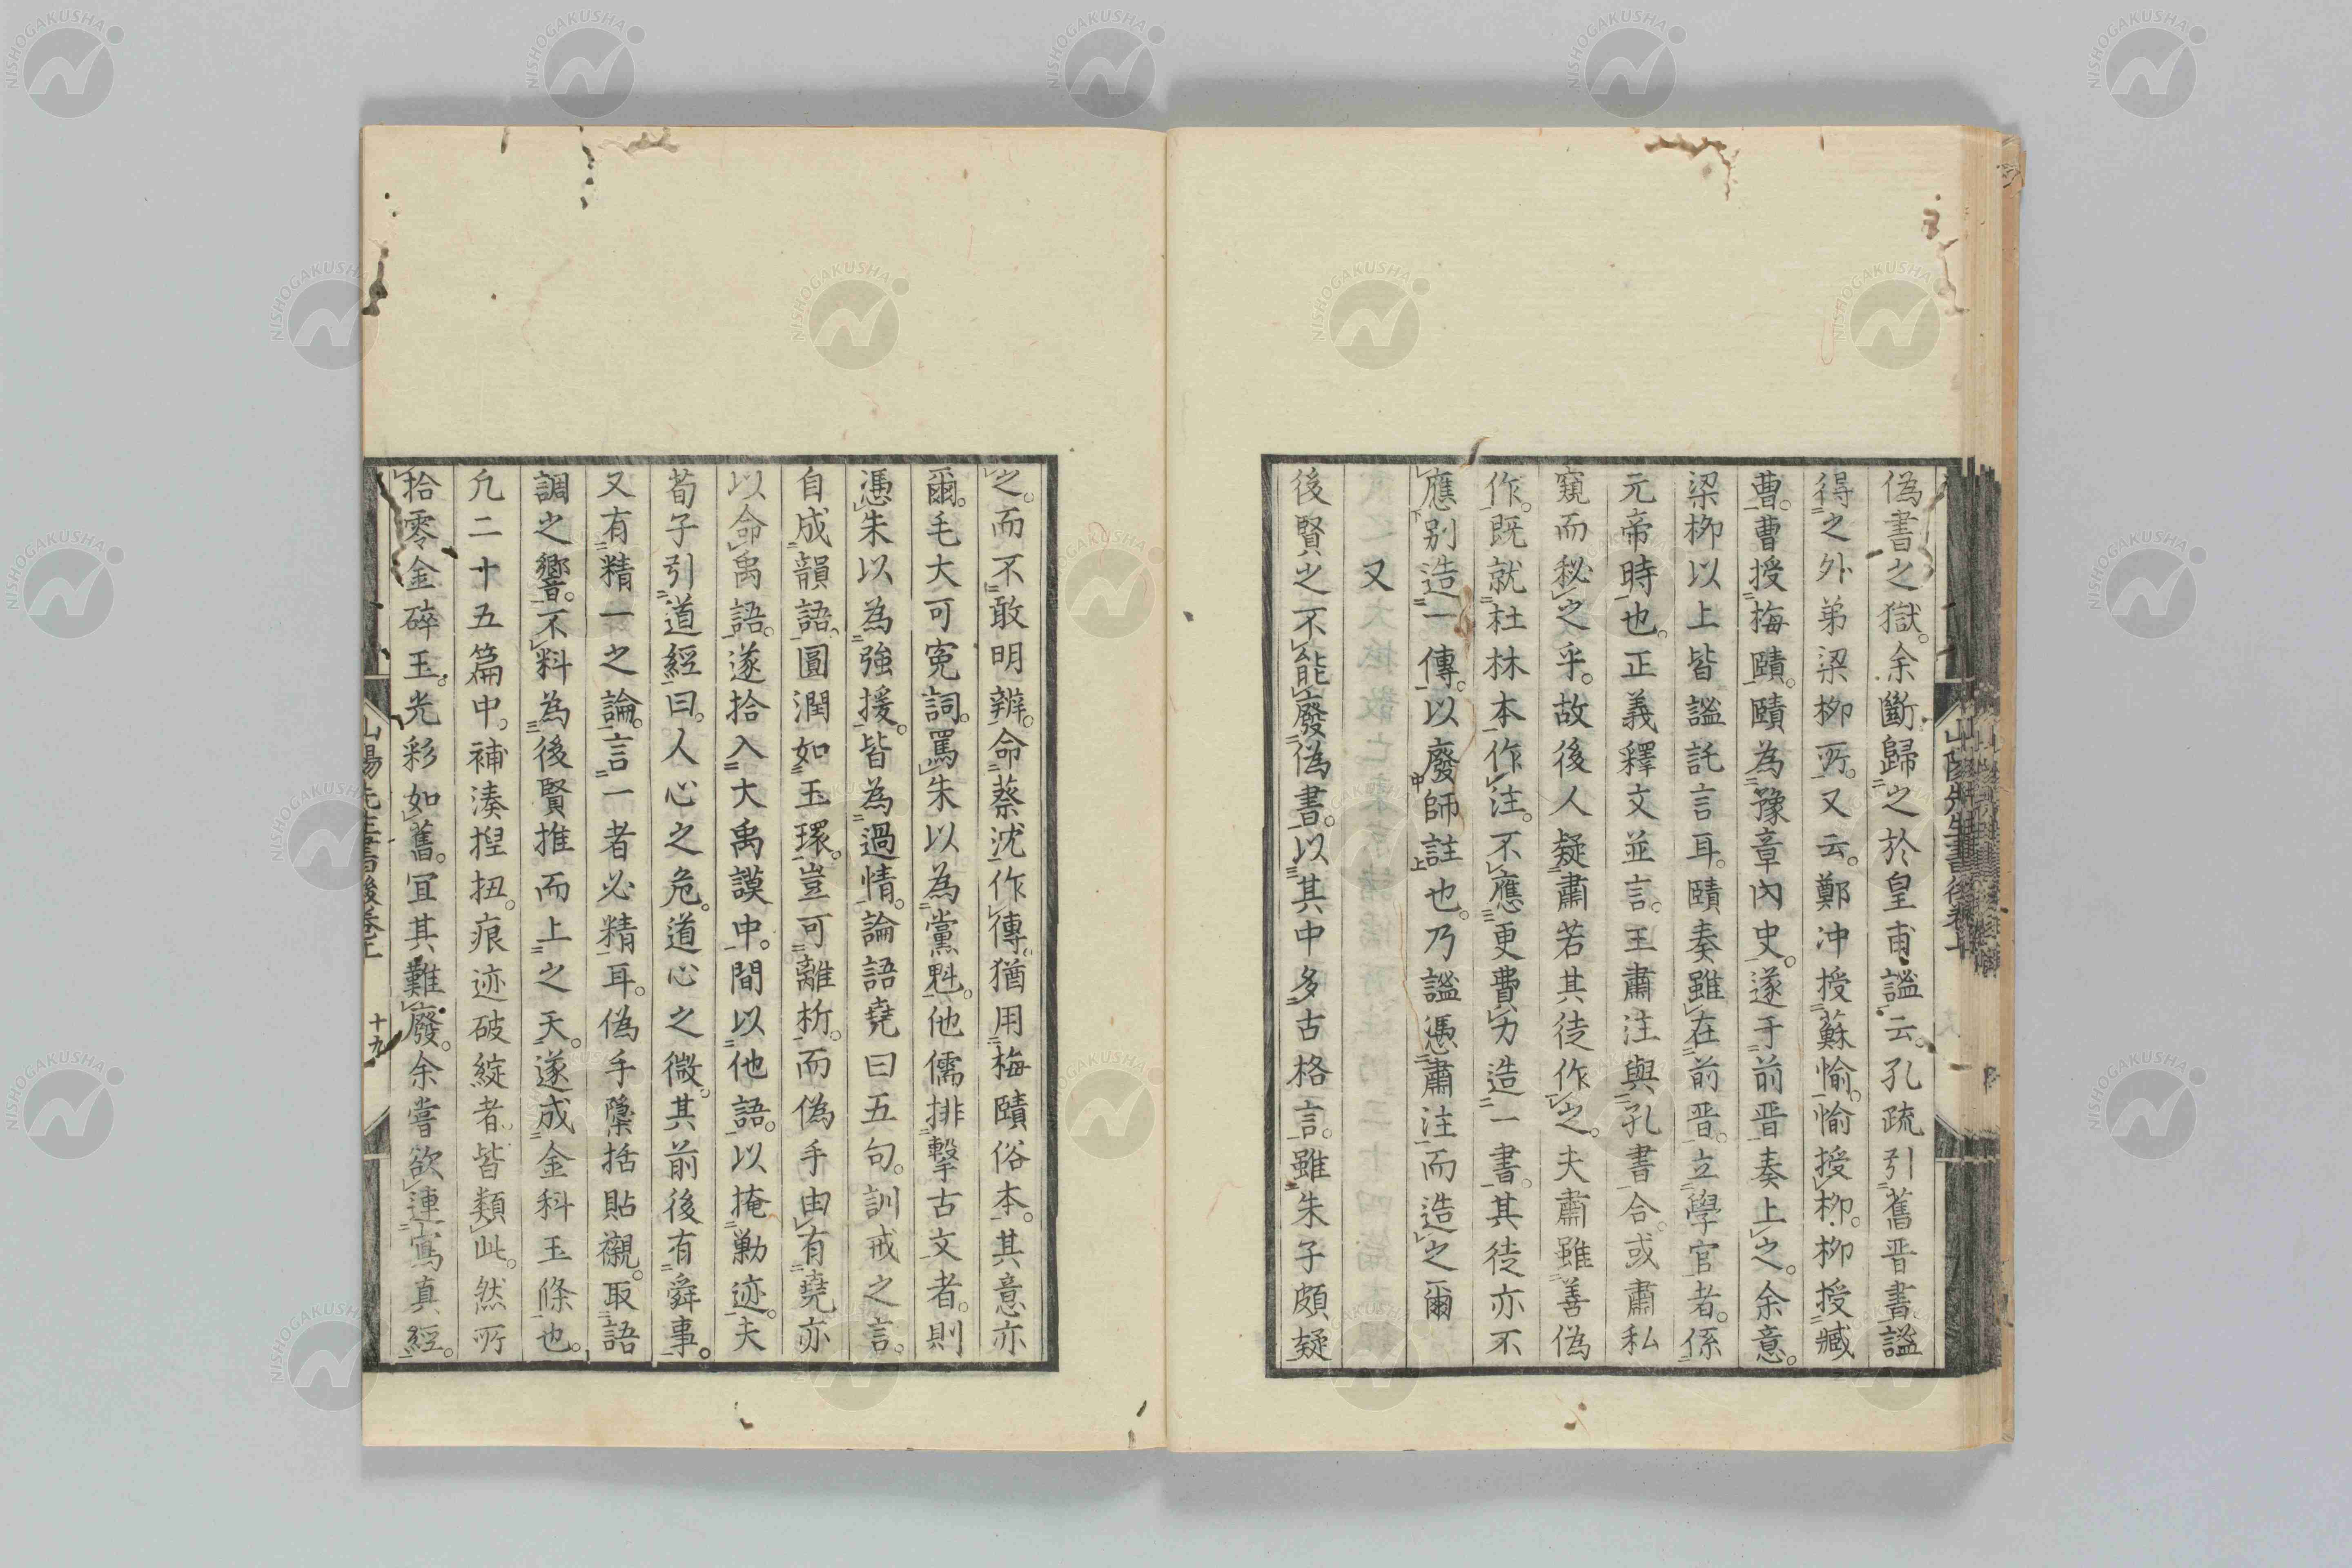 偽書之獄。余斷歸之於皇甫謐云。孔疏引舊晋書謐
得之外弟梁柳所。又云。鄭冲授蘇愉。愉授柳。柳授臧
曹。曹授梅賾。賾為豫章内史。遂于前晋奏上之。余意。
梁柳以上皆謐託言耳。賾奏雖在前晋。立學官者。係
元帝時也。正義釋文並言。王肅注與孔書合。或肅私
窺而秘之乎。故後人疑肅若其徒作之。夫肅雖善偽
作。既就杜林本作注。不應更費力造一書。其徒亦不
應別造一傳。以廢師註也。乃謐憑肅注而造之爾
又
後賢之不能廢偽書。以其中多古格言。雖朱子頗疑
之。而不敢明辨。命蔡沈作傳。猶用梅賾俗本。其意亦
爾。毛大可寃詞。罵朱以為黨魁。他儒排擊古文者。則
憑朱以為強援。皆為過情。論語堯曰五句。訓戒之言。
自成韻語。圓潤如玉環。豈可離析。而偽手由有堯亦
以命禹語。遂拾入大禹謨中。間以他語。以掩勦迹。夫
荀子引道經曰。人心之危。道心之微。其前後有舜事。
又有精一之論。言一者必精耳。偽手檃括貼襯。取語
調之響。不料為後賢推而上之天。遂成金科玉條也。
凡二十五篇中。補湊捏扭。痕迹破綻者。皆類此。然所
拾零金碎玉。光彩如舊。宜其難廢。余嘗欲連寫真經。
山陽先生書後卷上
十九
NISHOGAKUSHA